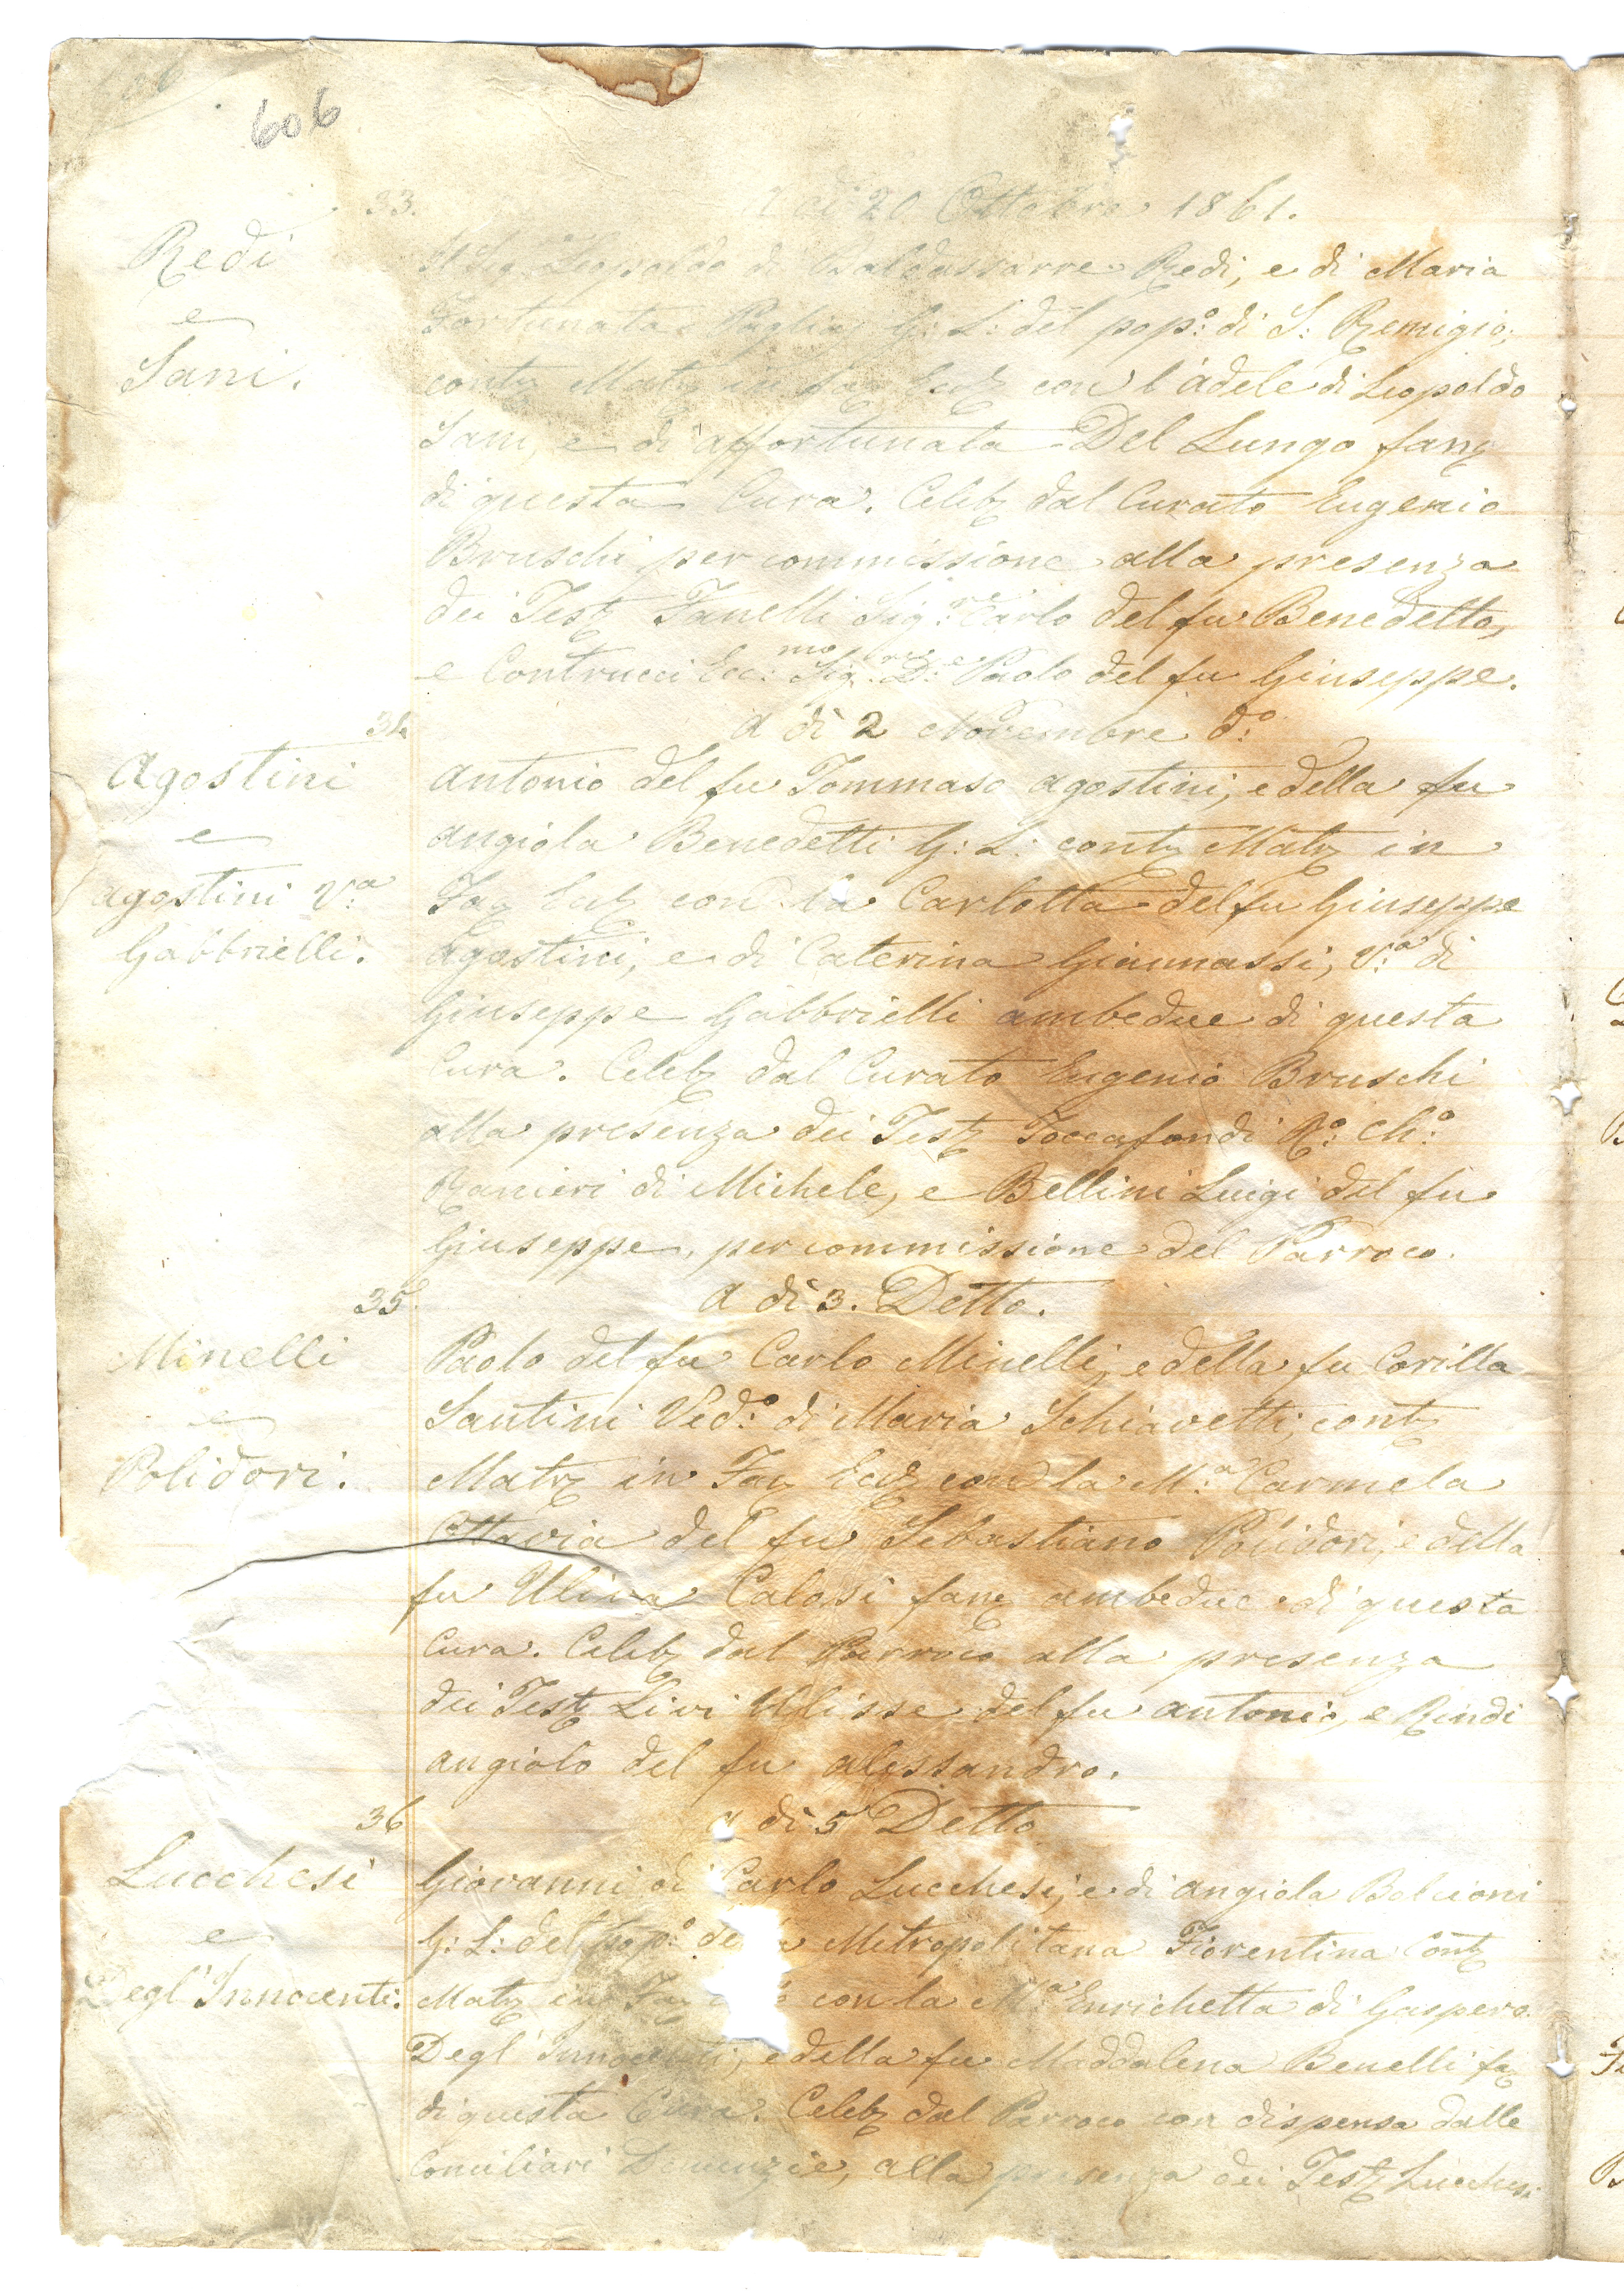 606
33.
a di 20 Ottobre 1861.
Redi
e
Sani.
Il Sig. Leopoldo di Baldassarre Redi, e di Maria
Fortunata Paglia G: L: del pop:o di S: Remigio,
contz Matz in faz Eccz con l'Adele di Leopoldo
Sani, e di Affortunata Del Lungo fanz
di questa Cura. Celebz dal Curato Eugenio
Bruschi per commissione alla presenza
dei Testz Fanelli Sig:re Carlo del fu Benedetto,
e Contrucci Ecc:mo Sig:re D:e Paolo del fu Giuseppe.
34
a di 2 Novembre d:o
Agostini
e
Agostini V:a
Gabbrielli.
Antonio del fu Tommaso Agostini, e della fu
Angiola Benedetti G: L: contz Matz in
Faz Eccz con la Carlotta del fu Giuseppe
Agostini, e di Caterina Giannassi, V:a di
Giuseppe Gabbrielli ambedue di questa
Cura. Celebz dal Curato Eugenio Bruschi
alla presenza dei Testz Toccafondi R:o Ch:o
Ranieri di Michele, e Bellini Luigi del fu
Giuseppe, per commissione del Parroco.
35
a di 3. Detto.
Minelli
e
Polidori.
Paolo del fu Carlo Minelli, e della fu Corilla
Santini Ved:o di Maria Schiavetti, contz
Matz in Faz Eccz con la M:a Carmela
Ottavia del fu Sebastiano Polidori, e della
fu Uliva Calosi fanz ambedue di questa
Cura. Celebz dal Parroco alla presenza
dei Testz Livi Ulisse del fu Antonio, e Rindi
Angiolo del fu Alessandro.
36
a di 5 Detto
Lucchesi
e
Degl'Innocenti.
Giovanni di Carlo Lucchesi, e di Angiola Belcioni
G: L: del pop:o de a Metropolitana Fiorentina Contz
Matz in Faz con la M:a Enrichetta di Gaspero
Degl'Innocenti, e della fu Maddalena Benelli fz
di questa Cura. Celebz dal Parroco con dispensa dalle
Conciliari Denunzie, alla presenza dei Testz Lucchesi